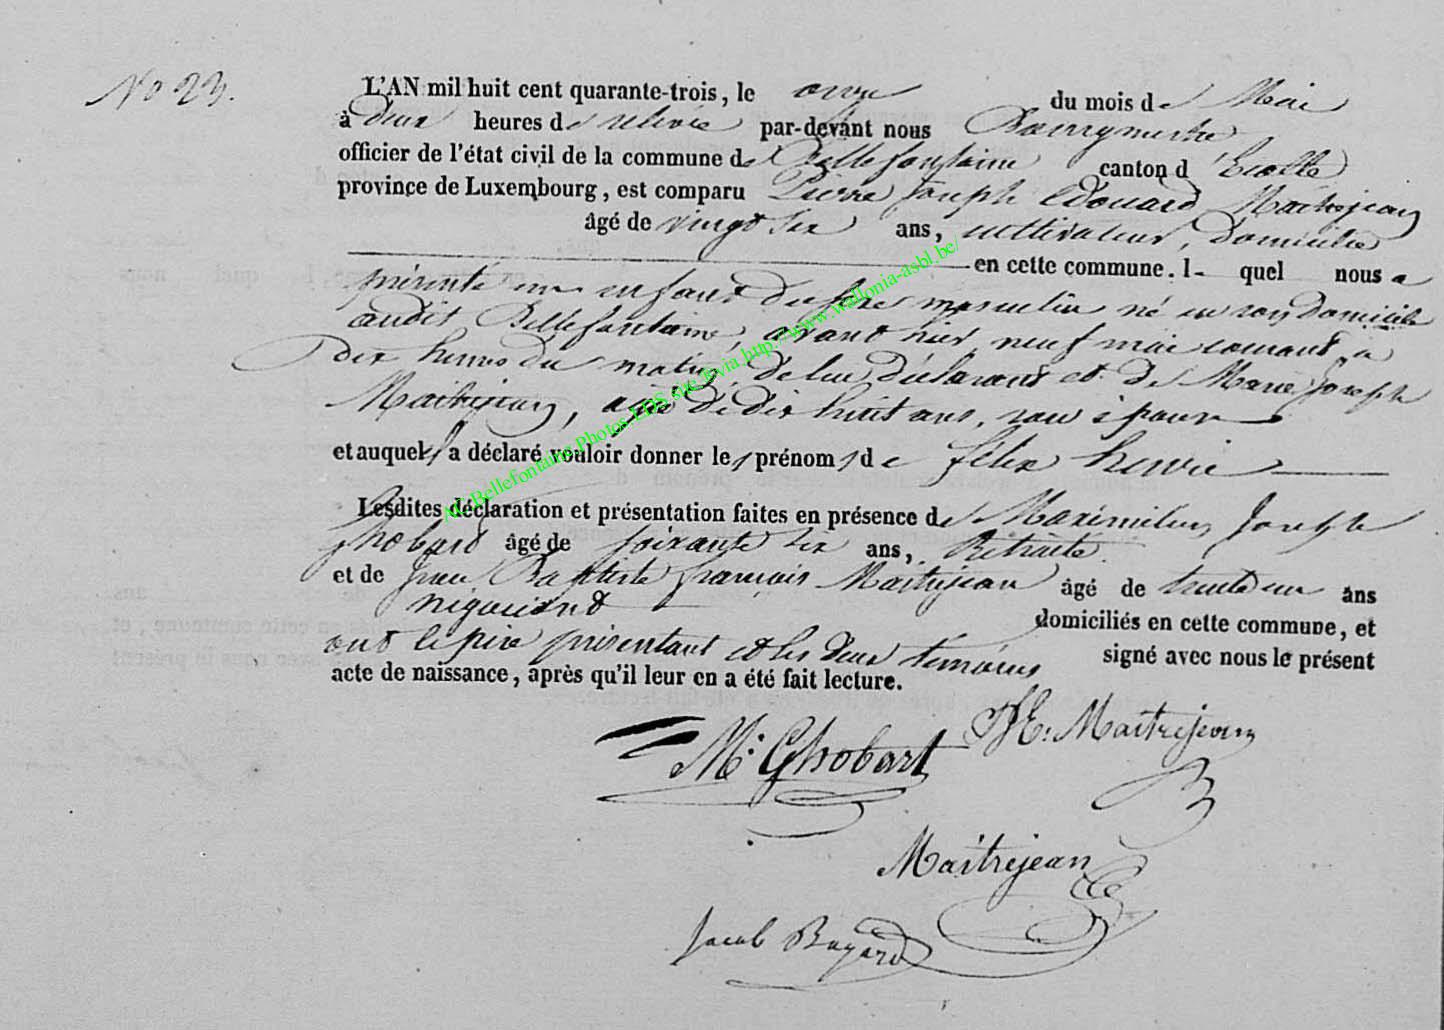 No 23.
L'AN mil huit cent quarante-trois, le onze du mois de Mai
à deux heures de relevée par-devant nous Bourgmestre
officier de l'état civil de la commune de Bellefontaine canton d'Etalle
province de Luxembourg, est comparu Pierre Joseph Edouard Maitrejean
âgé de vingt six ans, cultivateur, domicilié
en cette commune. l- quel nous a
présenté un enfant du sexe masculin né en son domicile
audit Bellefontaine, avant hier, neuf mai courant, à
dix heures du matin, de lui déclarant et de Marie Joseph
Maitrejean, agée de dix huit ans, son épouse
et auquel il a déclaré vouloir donner les prénoms de félix henri
Lesdites déclaration et présentation faites en présence de Maximilien Joseph
Ghobard âgé de soixante six ans, Retraité
et de Jean Baptiste françois Maitrejean âgé de trente un ans
négociant domiciliés en cette commune, et
ont le père présentant et les deux témoins signé avec nous le présent
acte de naissance, après qu'il leur en a été fait lecture.
M: Ghobart
E: Maitrejean
Maitrejean
Jacob Bayard
AE.Bellefontaine.Photos.LDS.size.fr.via.http://www.wallonia-asbl.be/